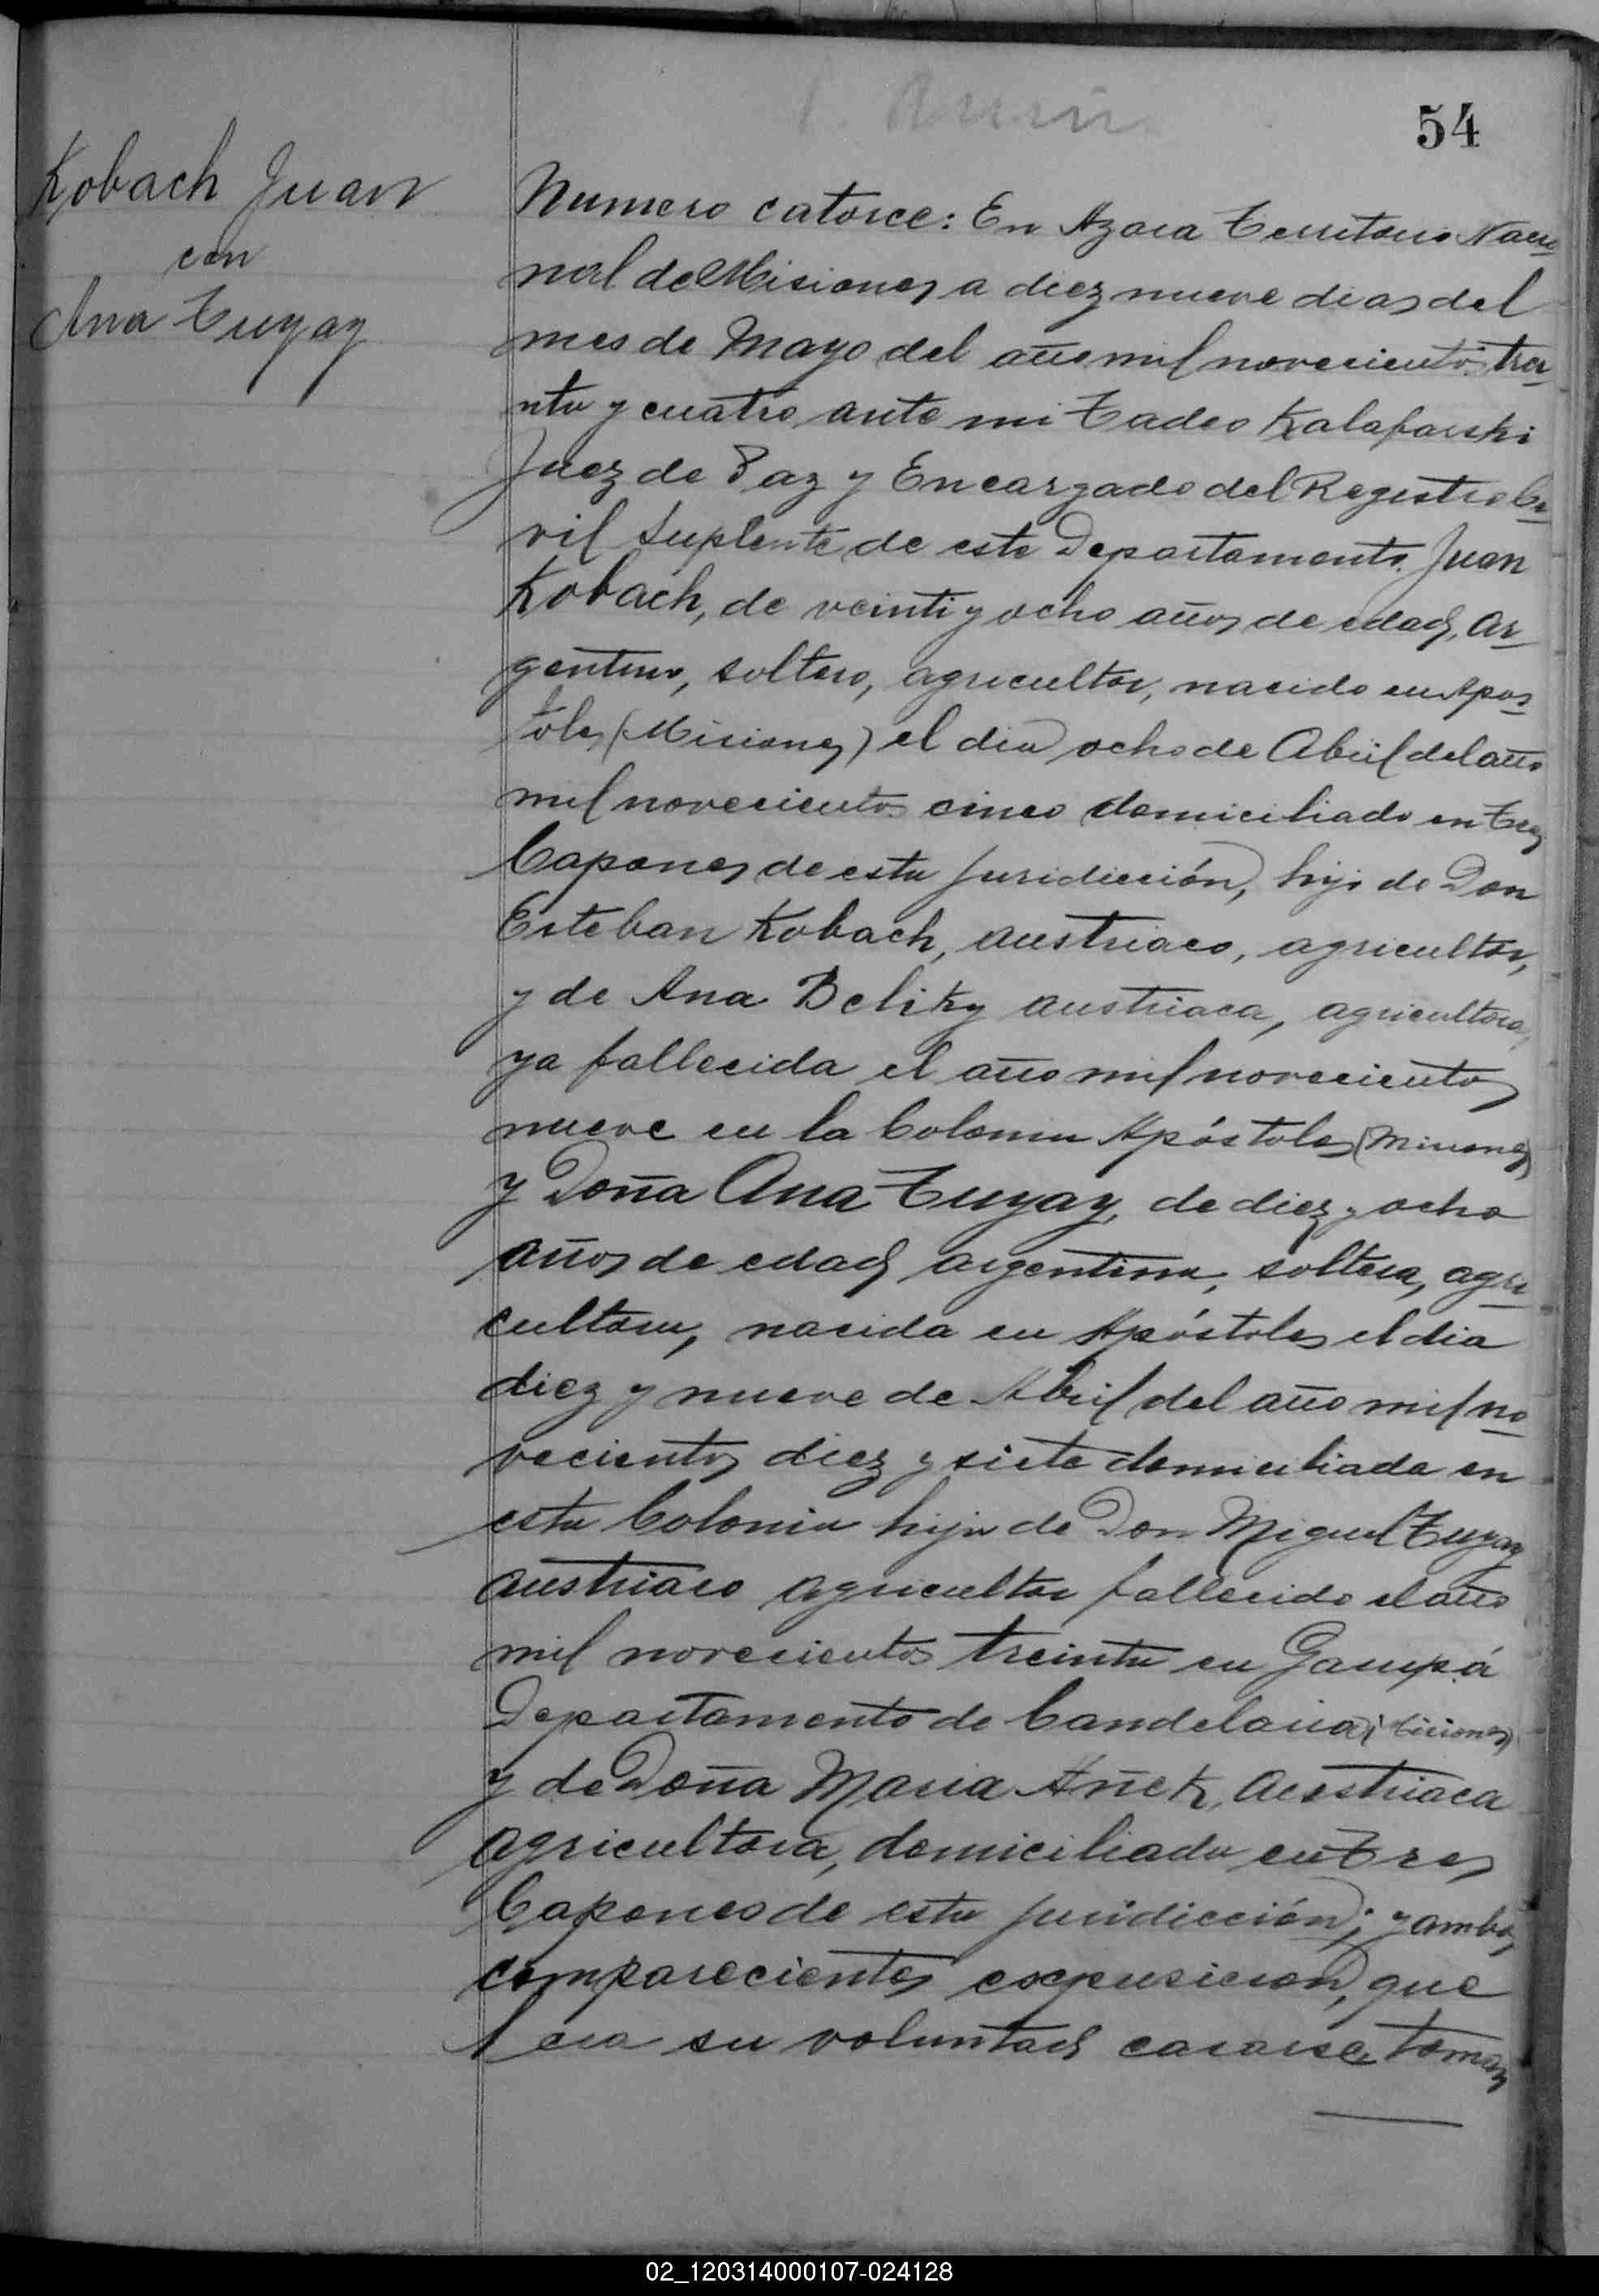 54
Kobach Juan
con
Ana Tuyay
Numero catorce: En Azara Territorio Nacio
nal de Misiones a diez nueve dias del
mes de Mayo del año mil novecientos trei
nta y cuatro ante mi Tadeo Kalafarski
Juez de Paz y Encargado del Registro Ci
vil Suplente de este Departamento. Juan
Kobach, de veinti y ocho años de edad, ar
gentino, soltero, agricultor, nacido en Apos
toles (Misiones) el dia ocho de Abril del año
mil novecientos cinco domiciliado en Tres
Capones de esta juridicción, hijo de Don
Esteban Kobach, austriaco, agricultor,
y de Ana Belizky austriaca, agricultora,
ya fallecida el año mil novecientos
nueve en la Colonia Apóstoles (Misiones)
y Doña Ana Tuyay, de diez y ocho
años de edad argentina, soltera, agri
cultora, nacida en Apóstoles el dia
diez y nueve de Abril del año mil no
vecientos diez y siete domiciliada en
esta Colonia hija de Don Miguel Tuyay
austriaco agricultor fallecido el año
mil novecientos treinta en Garupá
Departamento de Candelaria (Misiones)
y de Doña Maria Añek, austriaca
agricultora, domiciliada en Tres
Capones de esta juridicción; y ambos
comparecientes expusieron, que
era su voluntad casarse, toman
02_120314000107-024128